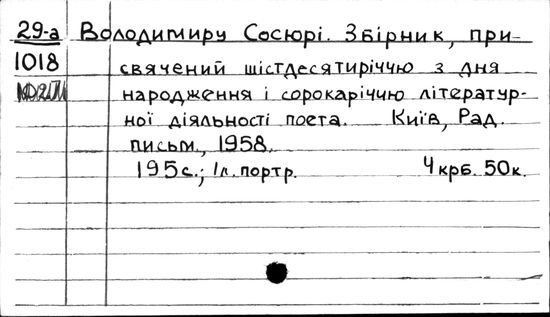 29-а Володимиру Сосюрі. Збірник, при-
1018 свячений шістдесятиріччю з дня
народження і сорокаріччю літератур-
ної діяльності поета. Київ, Рад.
письм., 1958.
195с.; 1л. портр. 4 крб. 50к.